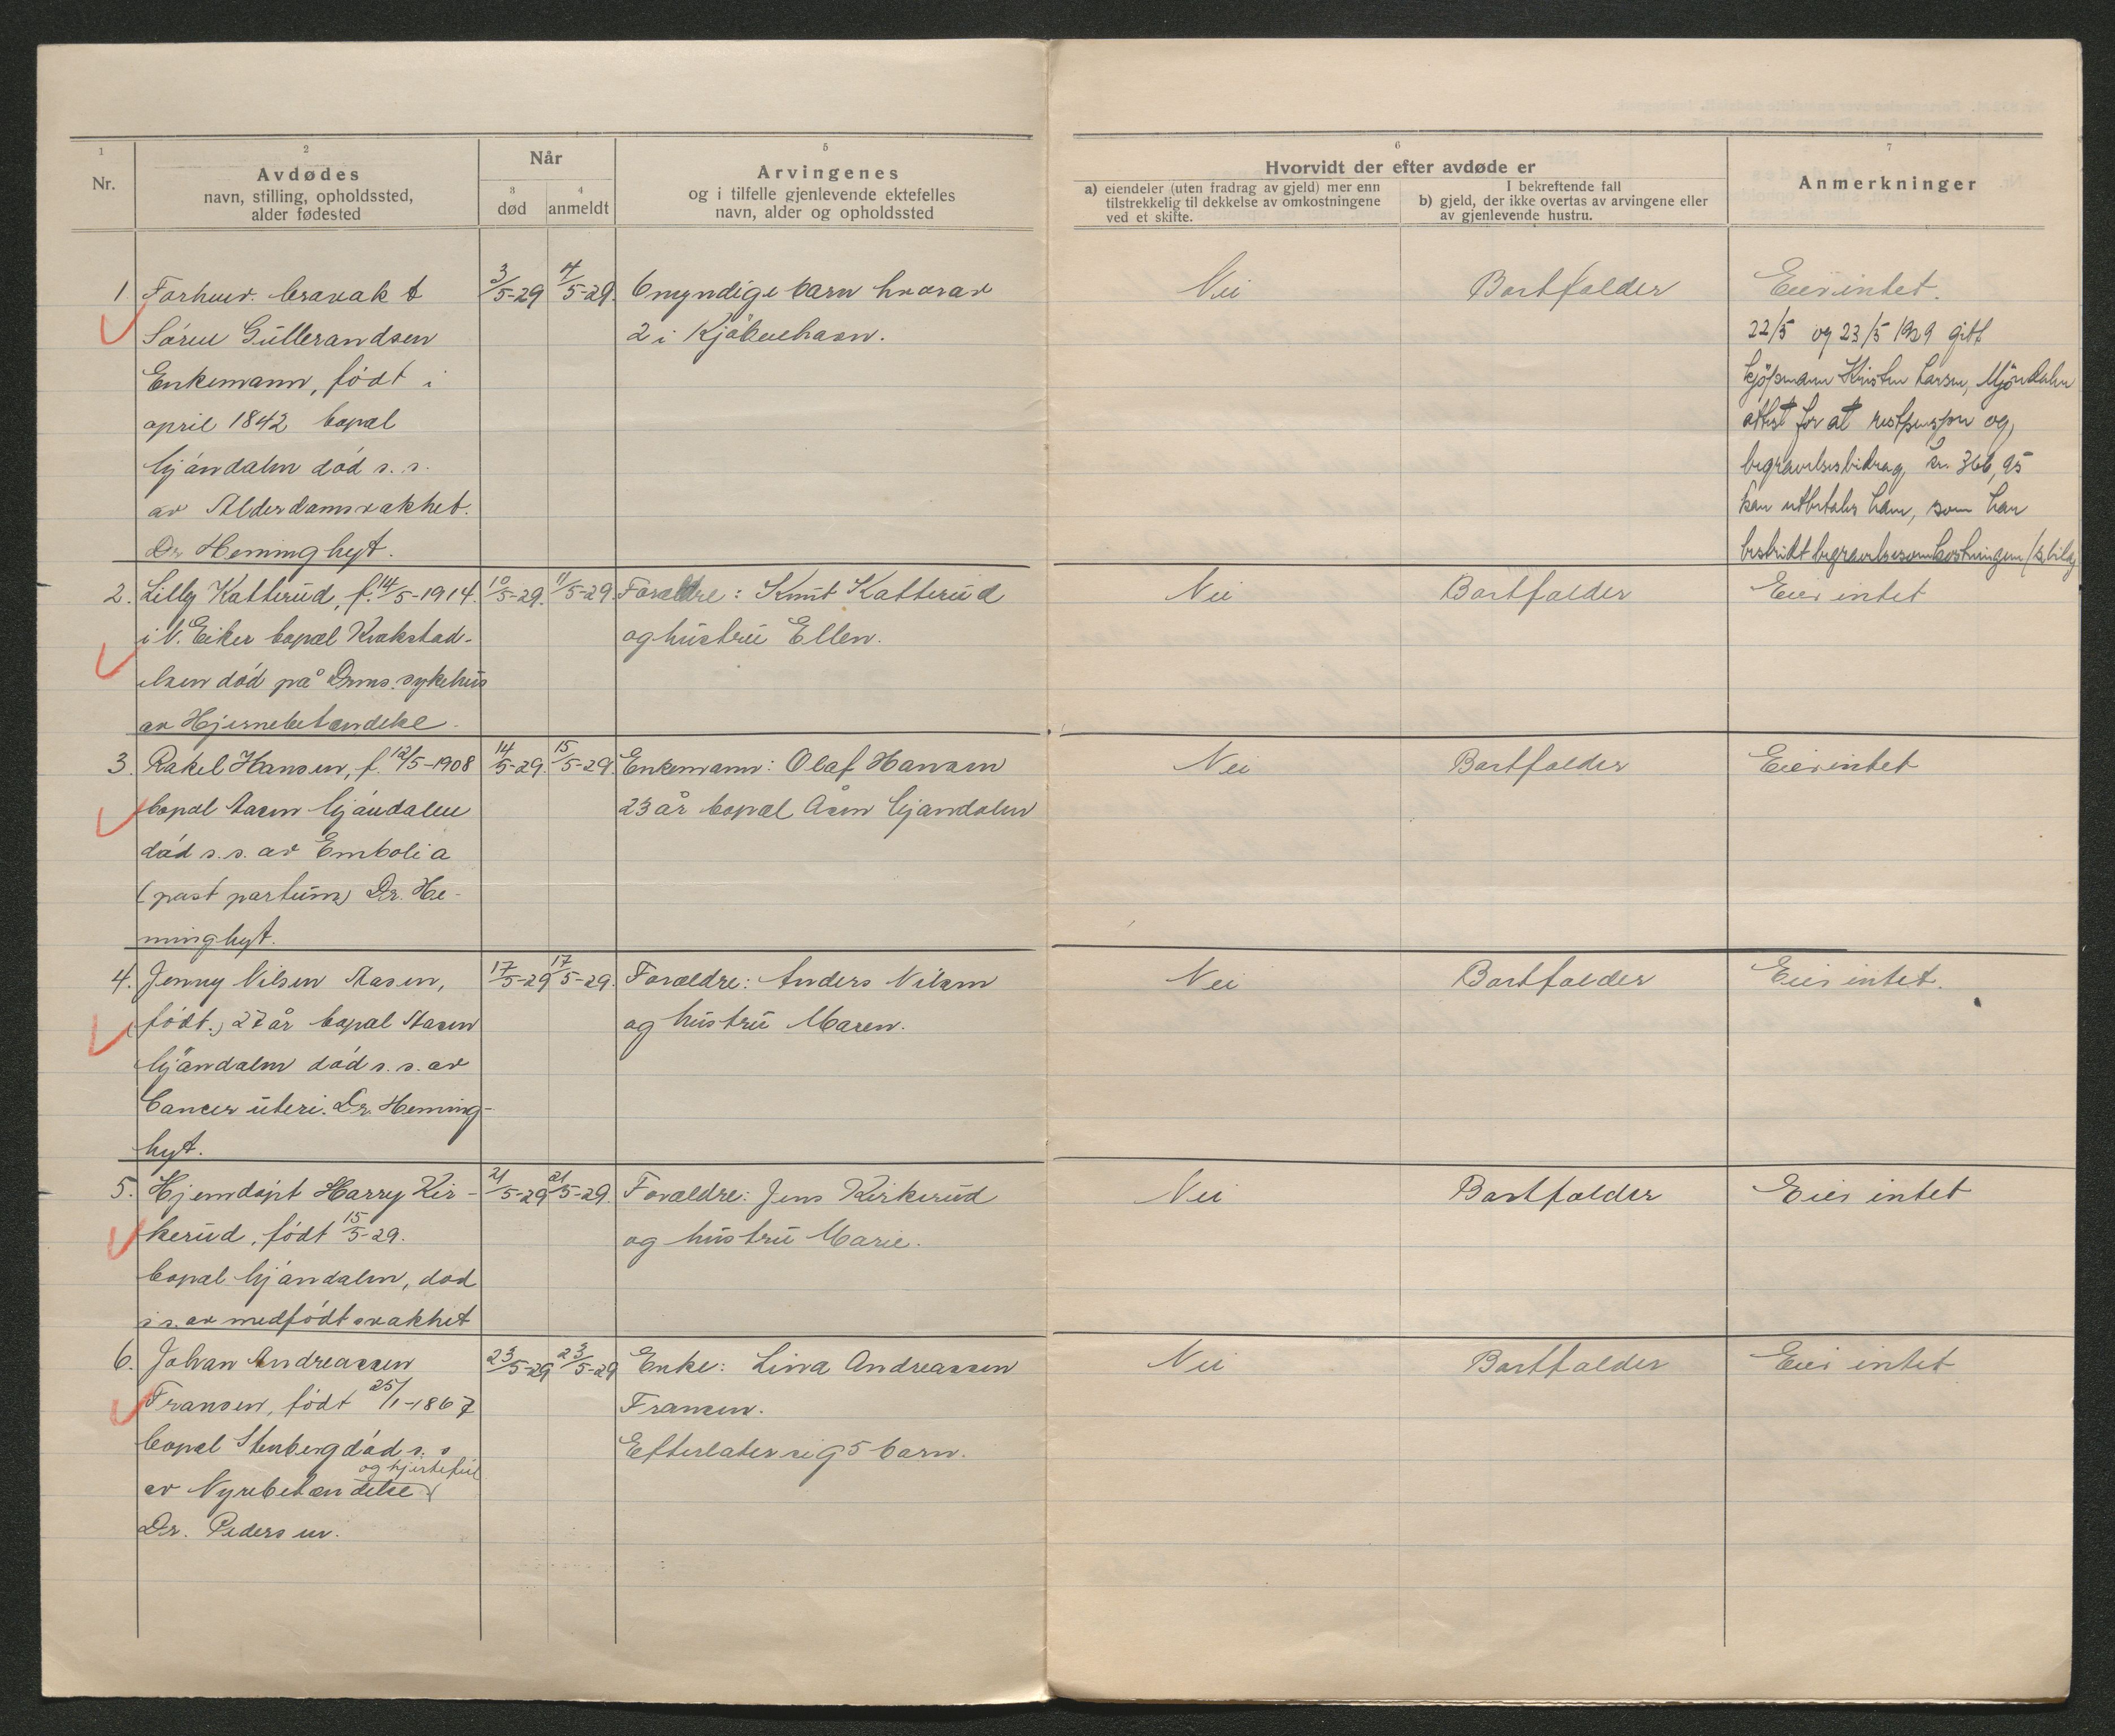 1
Nr.
2
Avdødes
navn, stilling, opholdssted,
alder fødested
Når
3
død
4
anmeldt
5
Arvingenes
og i tilfelle gjenlevende ektefelles
navn, alder og opholdssted
6
Hvorvidt der efter avdøde er
a) eiendeler (uten fradrag av gjeld) mer enn
tilstrekkelig til dekkelse av omkostningene
ved et skifte.
I bekreftende fall
b) gjeld, der ikke overtas av arvingene eller
av gjenlevende hustru.
7
Anmerkninger
1 Forhenv.
Søren Gullerandsen
Enkemann, født i
april 1842 bopæl
Mjøndalen død s. s.
av Alderdomsvakhet.
Dr Heminghyt.
3/5-29 4/5-29.
6 myndige barn hvorav
2 i Kjøbenhavn.
Nei
Bortfalder
Eier intet.
22/5 og 23/5 1929 gitt
kjøpmann Kristen Larsen, Mjøndalen
attest for at restpensjon og
begravelsesbidrag, kr. 366,95
kan utbetales ham, som har
bestridt begravelsesomkostningene
2. Lilly Katterud, f. 14/5-1914.
i N. Eiker bopæl Krokstad-
elven død på Drms. sykehus
av Hjernebetændelse.
10/5-29. 11/5-29.
Forældre: Knut Katterud
og hustru Ellen.
Nei
Bortfalder
Eier intet
3. Rakel Hansen, f. 12/5-1908
bopæl Aasen Mjøndalen
død s. s. av Embolia
(post partum) Dr. He-
minghyt.
14/5-29. 15/5-29.
Enkemann: Olaf Hansen
23 år bopæl Åsen Mjøndalen
Nei
Bortfalder
Eier intet
4. Jenny Nilsen Aasen,
født., 27 år bopæl Aasen
Mjøndalen død s. s. av
Cancer uteri. Dr. Heming-
hyt.
17/5-29 17/5-29.
Forældre: Anders Nilsen
og hustru Maren.
Nei
Bortfalder
Eier intet.
5. Hjemdøpt Harry Kir-
kerud, født 15/5-29.
bopæl Mjøndalen, død
s s. av medfødt svakhet
21/5-29 21/5-29.
Forældre: Jens Kirkerud
og hustru Marie.
Nei
Bortfalder
Eier intet
6. Johan Andreassen
Fransen, født 25/1-1867
bopæl Stenberg død s. s
og hjertefeil
av Nyrebetændelse
Dr. Pedersen.
23/5-29 23/5-29
Enke: Lina Andreassen
Fransen.
Efterlater sig 5 barn.
Nei
Bortfalder
Eier intet